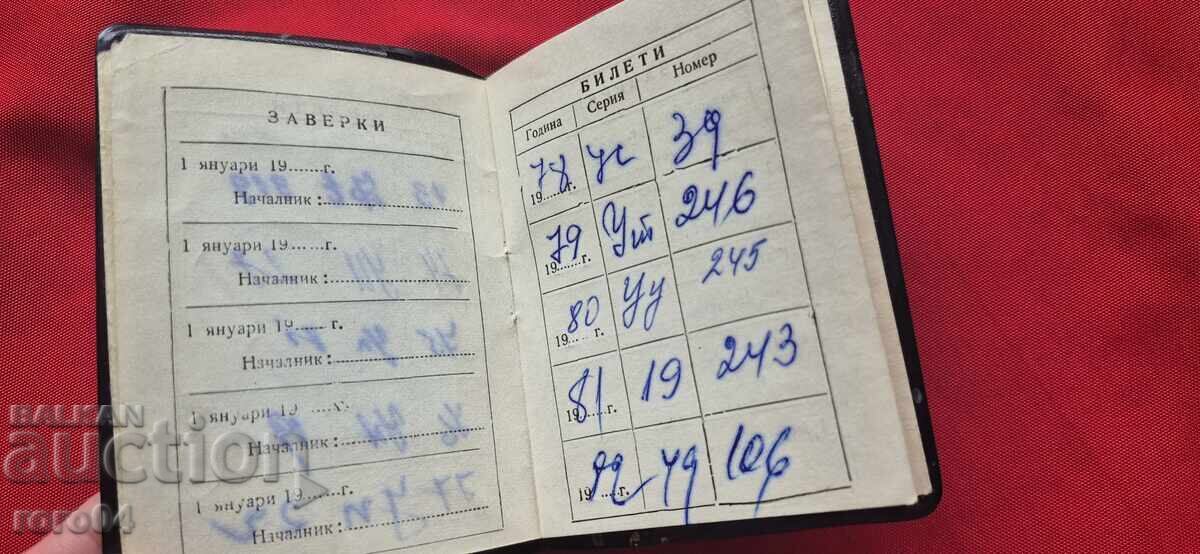 ЗАВЕРКИ
1 януари 19......г.
Началник:
1 януари 19......г.
Началник:
1 януари 19......г.
Началник:
1 януари 19
Началник:
1 януари 19......г.
Началник:
БИЛЕТИ
Година Серия Номер
1978г. Ус 39
1979г. Ут 246
1980г. Уу 245
1981г. 19 243
19 г. 106
BALKAN
auction
roro04